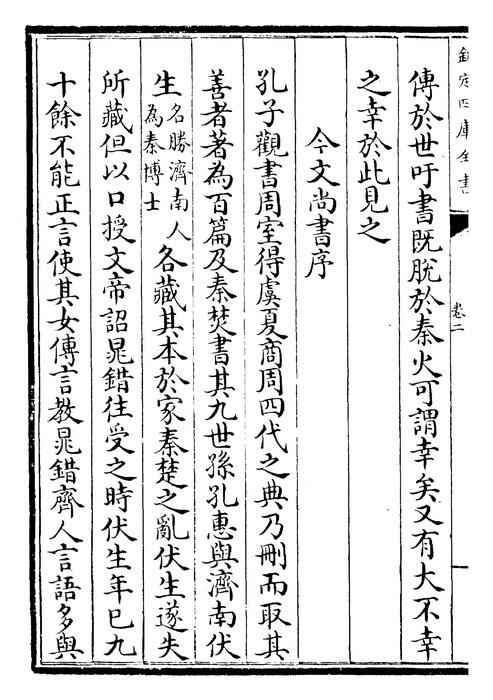 欽定四庫全書
卷二
傳於世吁書既脫於秦火可謂幸矣又有大不幸
之幸於此見之
今文尚書序
孔子觀書周室得虞夏商周四代之典乃刪而取其
善者著為百篇及秦焚書其九世孫孔惠與濟南伏
生名勝濟南人為秦博士各藏其本於家秦楚之亂伏生遂失
所藏但以口授文帝詔鼂錯往受之時伏生年已九
十餘不能正言使其女傳言教鼂錯齊人言語多與